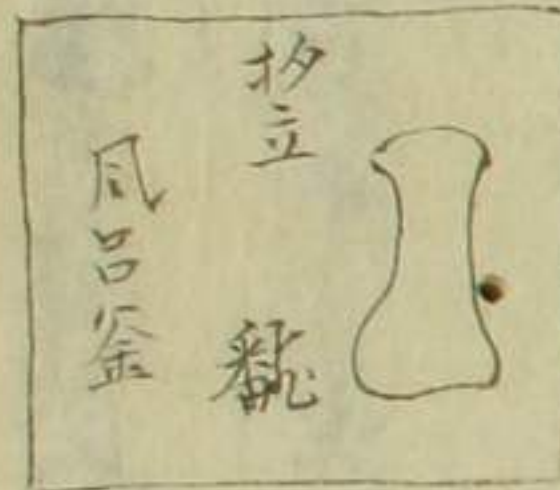 杓立 飜
風呂釜